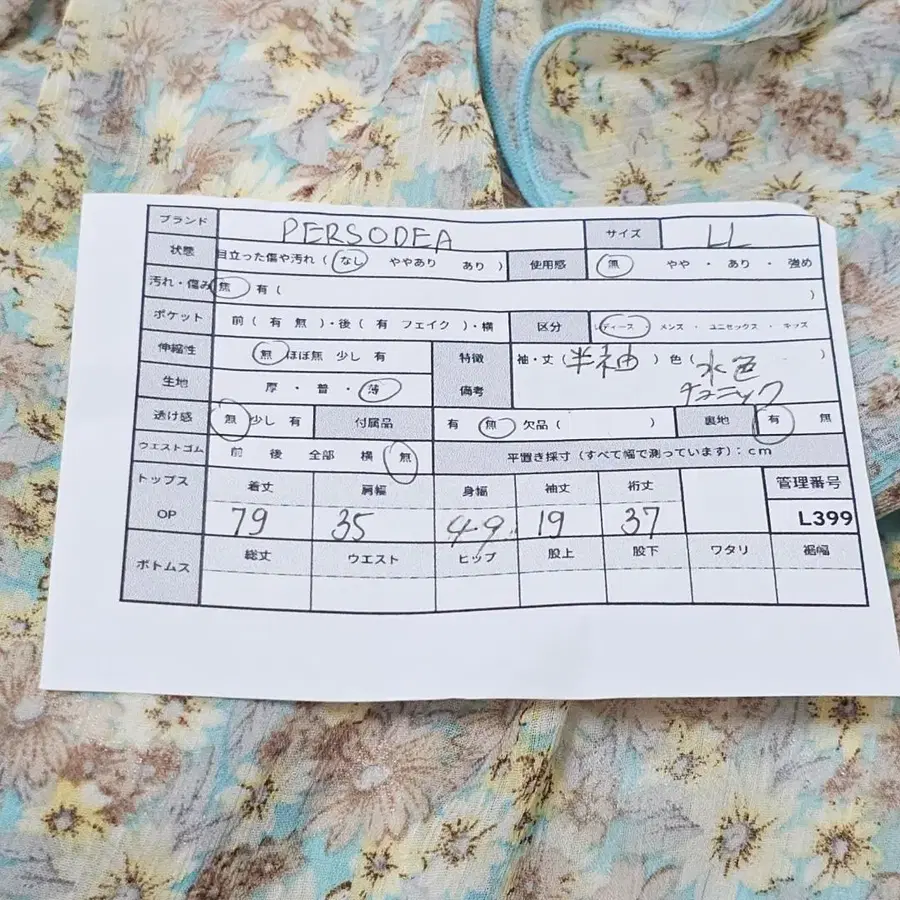 ブランド PERSODEA サイズ LL
状態 目立った傷や汚れ ( なし ややあり あり ) 使用感 無 やや ・ あり ・ 強め
汚れ・傷み 無 有 ( )
ポケット 前 ( 有 無 )・後 ( 有 フェイク )・横 区分 レディース ・ メンズ ・ ユニセックス ・ キッズ
伸縮性 無 ほぼ無 少し 有 特徴 備考 袖・丈 ( 半袖 ) 色 ( 水色 )
チュニック
生地 厚 ・ 普 ・ 薄
透け感 無 少し 有 付属品 有 無 欠品 ( ) 裏地 有 無
ウエストゴム 前 後 全部 横 無 平置き採寸 (すべて幅で測っています) : cm
トップス 着丈 肩幅 身幅 袖丈 裄丈 管理番号
OP 79 35 49 19 37 L399
ボトムス 総丈 ウエスト ヒップ 股上 股下 ワタリ 裾幅